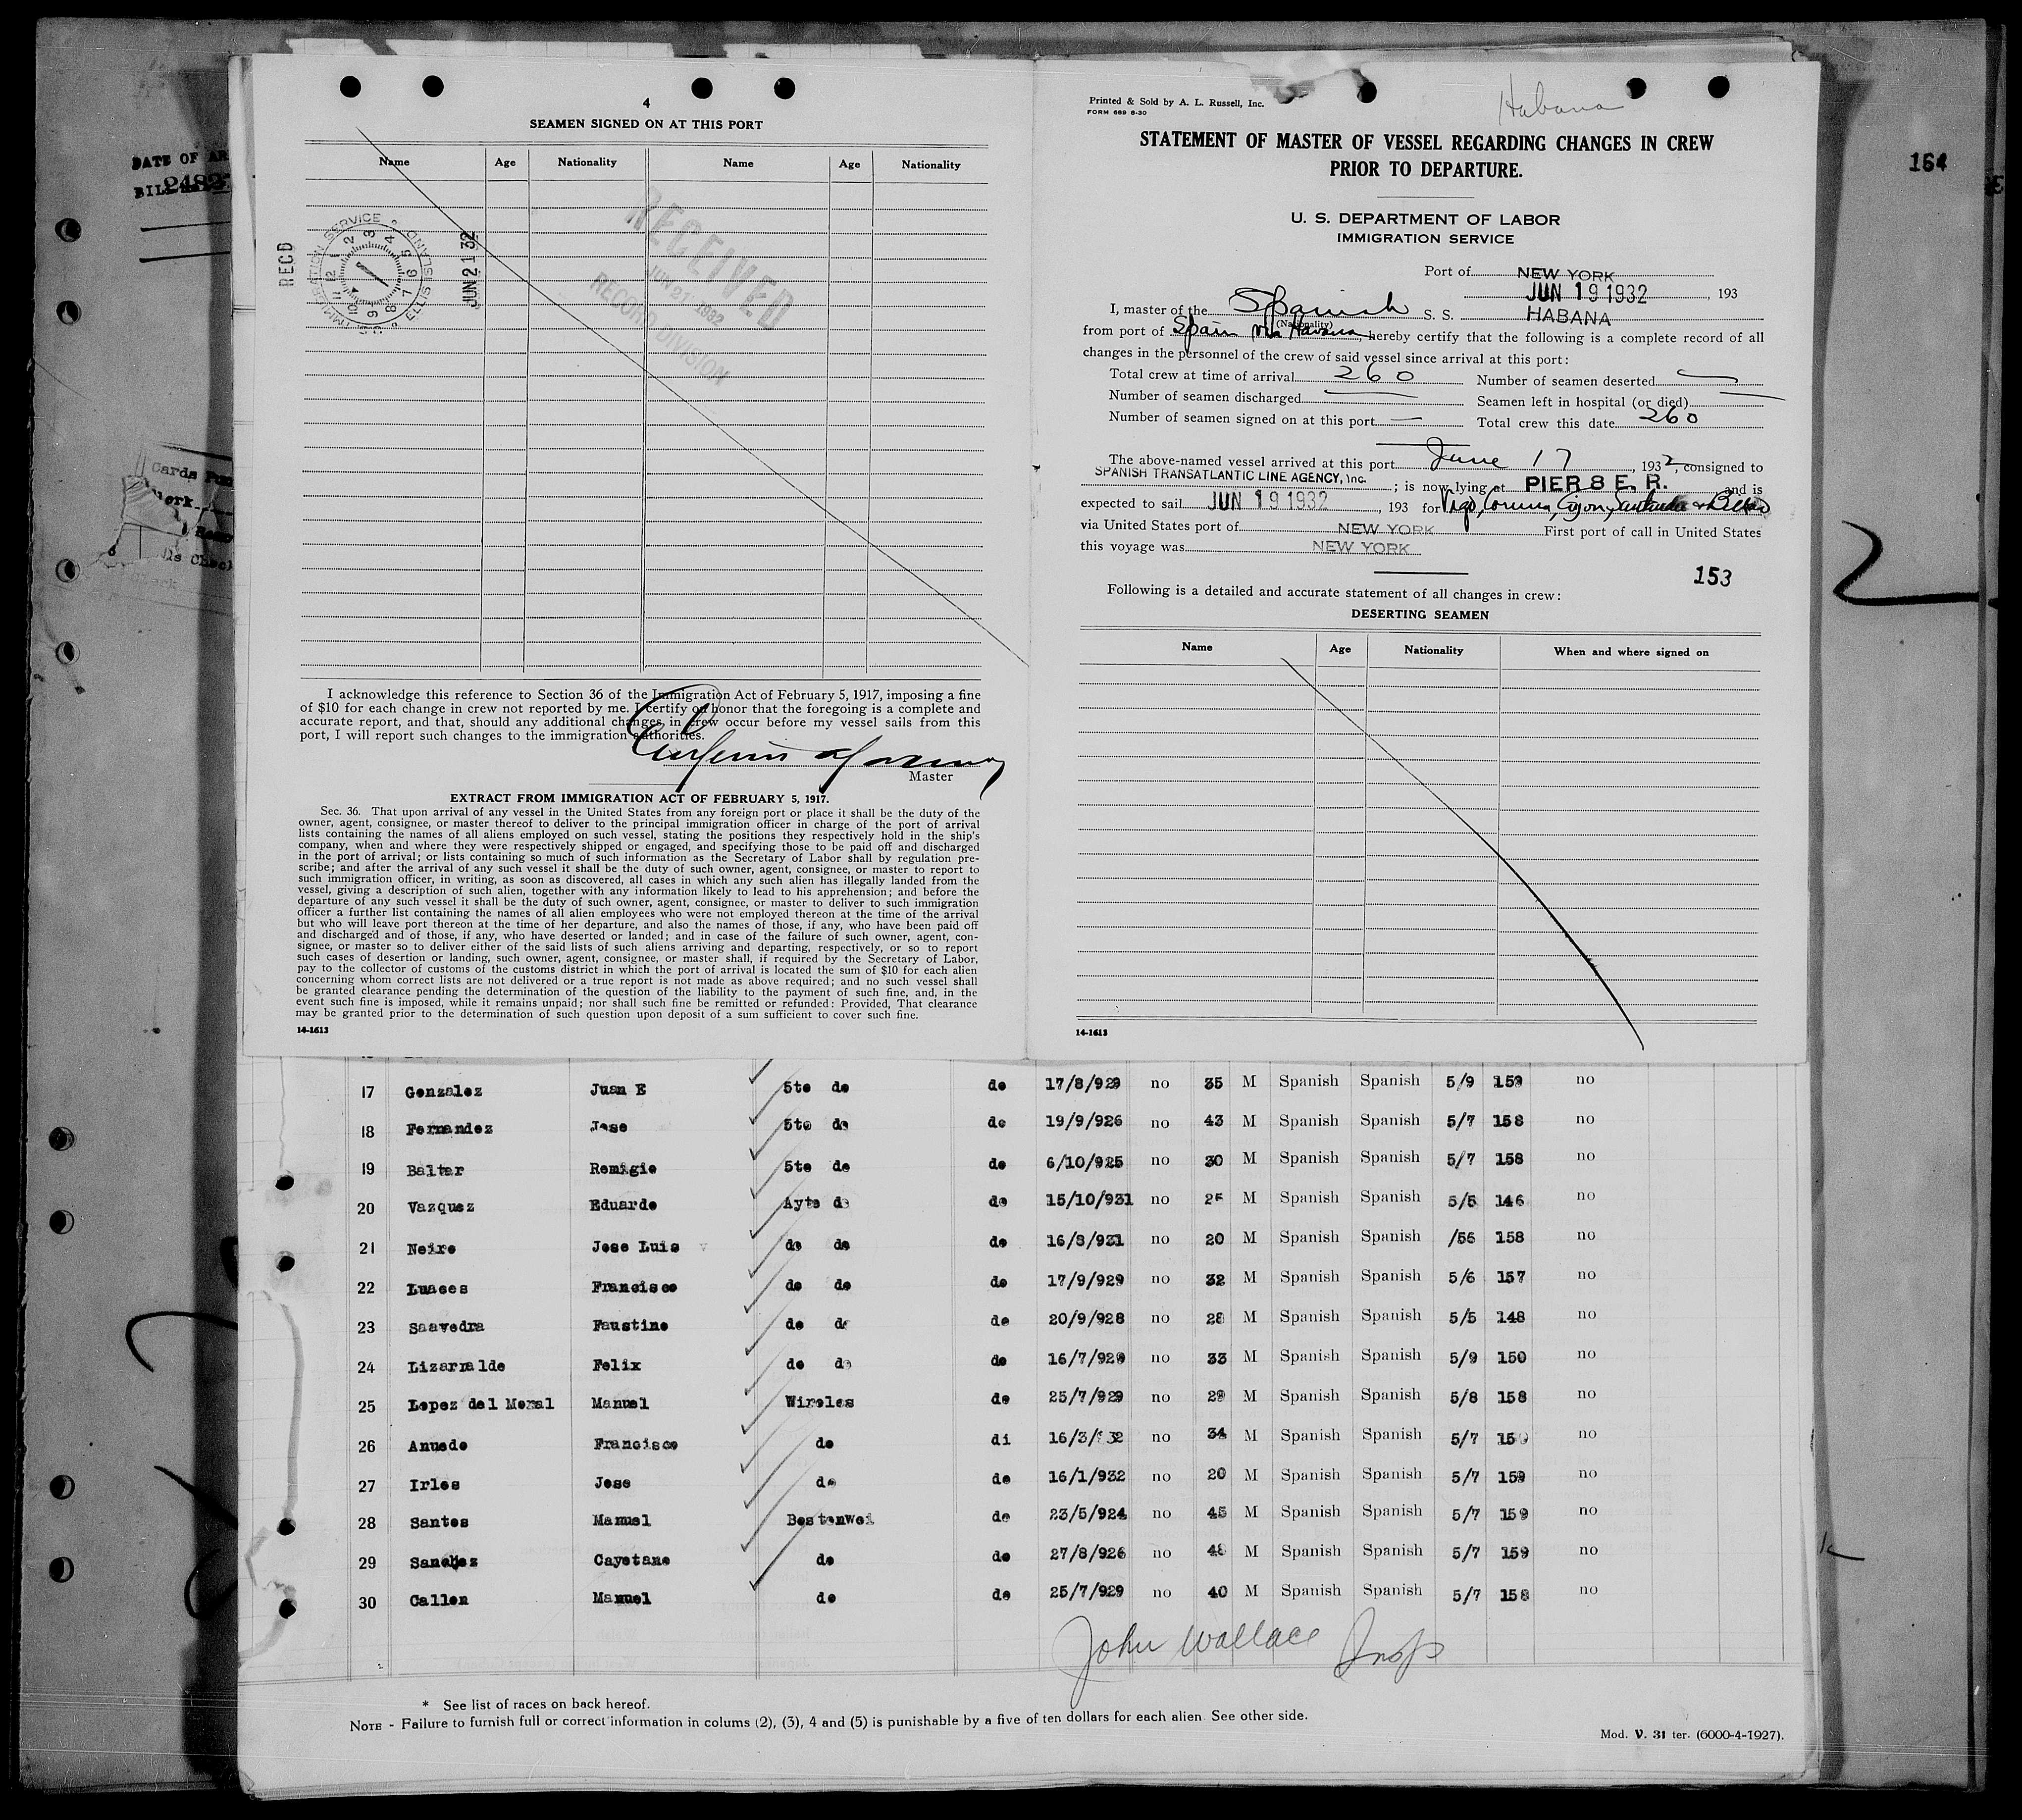 DATE OF AR
BILL
164
Cards Pun
Clerk
4
SEAMEN SIGNED ON AT THIS PORT
Name Age Nationality Name Age Nationality
RECD
IMMIGRATION SERVICE
ELLIS ISLAND
JUN 21 32
RECEIVED
JUN 21 1932
RECORD DIVISION
I acknowledge this reference to Section 36 of the Immigration Act of February 5, 1917, imposing a fine
of $10 for each change in crew not reported by me. I certify on honor that the foregoing is a complete and
accurate report, and that, should any additional changes in crew occur before my vessel sails from this
port, I will report such changes to the immigration authorities.
Master
EXTRACT FROM IMMIGRATION ACT OF FEBRUARY 5, 1917.
Sec. 36. That upon arrival of any vessel in the United States from any foreign port or place it shall be the duty of the
owner, agent, consignee, or master thereof to deliver to the principal immigration officer in charge of the port of arrival
lists containing the names of all aliens employed on such vessel, stating the positions they respectively hold in the ship's
company, when and where they were respectively shipped or engaged, and specifying those to be paid off and discharged
in the port of arrival; or lists containing so much of such information as the Secretary of Labor shall by regulation pre-
scribe; and after the arrival of any such vessel it shall be the duty of such owner, agent, consignee, or master to report to
such immigration officer, in writing, as soon as discovered, all cases in which any such alien has illegally landed from the
vessel, giving a description of such alien, together with any information likely to lead to his apprehension; and before the
departure of any such vessel it shall be the duty of such owner, agent, consignee, or master to deliver to such immigration
officer a further list containing the names of all alien employees who were not employed thereon at the time of the arrival
but who will leave port thereon at the time of her departure, and also the names of those, if any, who have been paid off
and discharged and of those, if any, who have deserted or landed; and in case of the failure of such owner, agent, con-
signee, or master so to deliver either of the said lists of such aliens arriving and departing, respectively, or so to report
such cases of desertion or landing, such owner, agent, consignee, or master shall, if required by the Secretary of Labor,
pay to the collector of customs of the customs district in which the port of arrival is located the sum of $10 for each alien
concerning whom correct lists are not delivered or a true report is not made as above required; and no such vessel shall
be granted clearance pending the determination of the question of the liability to the payment of such fine, and, in the
event such fine is imposed, while it remains unpaid; nor shall such fine be remitted or refunded: Provided, That clearance
may be granted prior to the determination of such question upon deposit of a sum sufficient to cover such fine.
14-1613
Printed & Sold by A. L. Russell, Inc.
FORM 689 6-30
Habana
STATEMENT OF MASTER OF VESSEL REGARDING CHANGES IN CREW
PRIOR TO DEPARTURE.
U. S. DEPARTMENT OF LABOR
IMMIGRATION SERVICE
Port of NEW YORK
JUN 19 1932, 193
I, master of the Spanish S. S. HABANA
(Nationality)
from port of Spain via Havana, hereby certify that the following is a complete record of all
changes in the personnel of the crew of said vessel since arrival at this port:
Total crew at time of arrival 260 Number of seamen deserted —
Number of seamen discharged — Seamen left in hospital (or died) —
Number of seamen signed on at this port — Total crew this date 260
The above-named vessel arrived at this port June 17, 1932, consigned to
SPANISH TRANSATLANTIC LINE AGENCY, Inc. ; is now lying at PIER 8 E. R. and is
expected to sail JUN 19 1932, 193 for Vigo, Coruna, Gijon, Santander & Bilbao
via United States port of NEW YORK First port of call in United States
this voyage was NEW YORK
153
Following is a detailed and accurate statement of all changes in crew:
DESERTING SEAMEN
Name Age Nationality When and where signed on
14-1613
17 Genzalez Juan E 5te de de 17/8/929 no 35 M Spanish Spanish 5/9 159 no
18 Fernandez Jose 5te de de 19/9/926 no 43 M Spanish Spanish 5/7 158 no
19 Baltar Remigie 5te de de 6/10/925 no 30 M Spanish Spanish 5/7 158 no
20 Vazquez Eduarde Ayte de de 15/10/931 no M Spanish Spanish 5/5 146 no
21 Neire Jose Luis de de de 16/8/931 no 20 M Spanish Spanish /56 158 no
22 Luaces Francisce de de de 17/9/929 no 32 M Spanish Spanish 5/6 157 no
23 Saavedra Faustine de de de 20/9/928 no 28 M Spanish Spanish 5/5 148 no
24 Lizarralde Felix de de de 16/7/929 no 33 M Spanish Spanish 5/9 150 no
25 Lepez del Meral Manuel Wireles de 25/7/929 no 29 M Spanish Spanish 5/8 158 no
26 Anuede Francisce de di 16/3/932 no 34 M Spanish Spanish 5/7 no
27 Irles Jese de de 16/1/932 no 20 M Spanish Spanish 5/7 159 no
28 Santes Manuel BestenWei de 23/5/924 no 45 M Spanish Spanish 5/7 159 no
29 Sanchez Cayetane de de 27/8/926 no 48 M Spanish Spanish 5/7 159 no
30 Callen Manuel de de 25/7/929 no 40 M Spanish Spanish 5/7 158 no
John Wallace Insp
* See list of races on back hereof.
NOTE - Failure to furnish full or correct information in colums (2), (3), 4 and (5) is punishable by a five of ten dollars for each alien See other side.
Mod. V. 31 ter. (6000-4-1927).